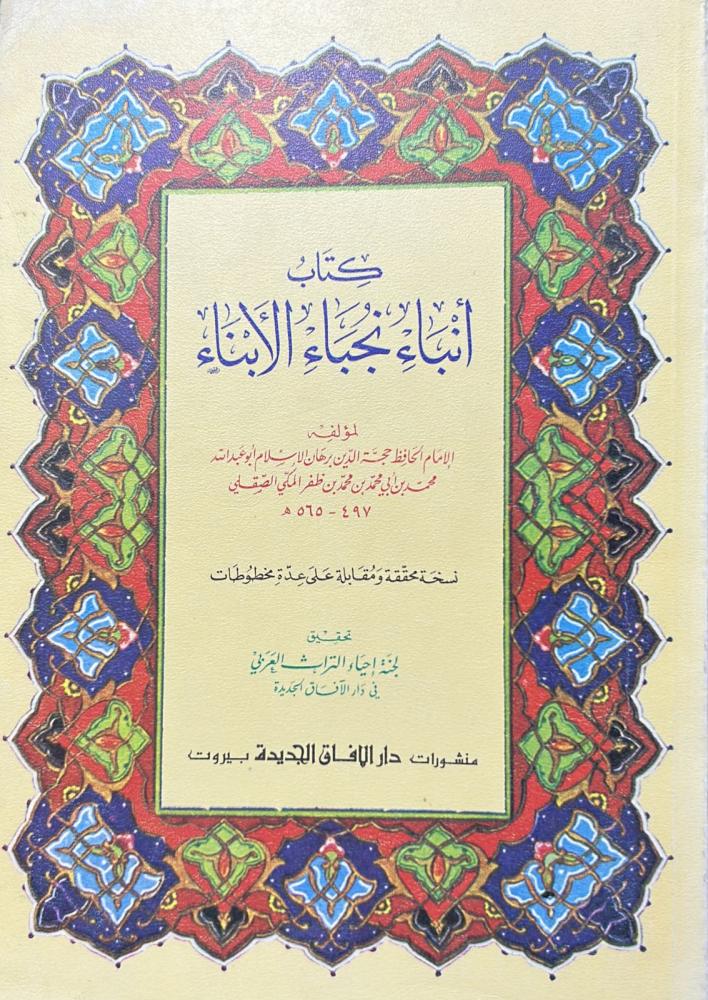 كِتَابُ
أَنْبَاءِ نُجَبَاءِ الأَبْنَاء
لمؤلفه
الإمام الحافظ حجة الدين برهان الإسلام أبو عبد الله
محمد بن أبي محمد بن محمد بن ظفر المكي الصقلي
٤٩٧ - ٥٦٥ هـ
نسخة محققة ومقابلة على عدة مخطوطات
تحقيق
لجنة إحياء التراث العربي
في دار الآفاق الجديدة
منشورات دار الآفاق الجديدة بيروت